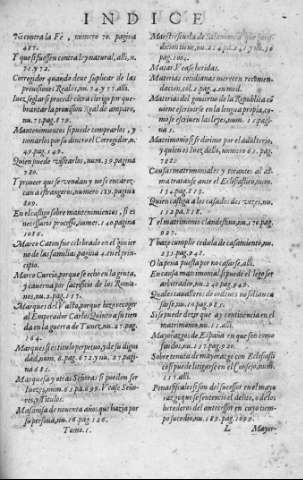 INDICE
contra la Fè, numero 70. pagina
487.
Y que si fuessen contra ley natural, alli, n.
71. y 72.
Corregidor quando deue suplicar de las
prouisiones Reales, nu. 74. y 77. alli.
Iuez seglar si procede
brantar la prouision Real de amparo,
nu. 75. pag. 879.
Mantenimientos si puede comprarlos, y
tomarlos por su dinero el Corregidor, n.
pag. 149.
Quien puede visitarlos, nu. 39. pagina
780.
Y primero que se vendan y no se encarez-
can a estrangeros, numero 129. pagina
809.
En el castigo sobre mantenimientos, si es
necessario processo, numer. 140. pagina
1080.
Marco Caton fue celebrado en el gouier
no de las familias, pagina 4. en el prin-
cipio.
Marco Curcio, porque se echo en la gruta,
y cauerna por sacrificio de los Roma-
nos, nu. 2. pag. 157.
Marques del Vasto, porque hizo recoger
al Emperador Carlos Quinto a su tien
da en la guerra de Tunez, nu. 27. pag.
364.
Marques si es titulo perpetuo, y de su digni
dad, num. 6. pag. 672. y nu. 27. pagi-
na 681.
Marquesa y otras Señoras si pueden ser
Iuezes, num. 61. pa. 699. Vease Seño-
res, y Titulos.
de nouenta años que hazia por
su persona, nu. 16. pag. 126.
Tomo. 1.
pag. 1004.
Materias cotidianas merecen recomen-
dacion, col. 2. en med.
Materias del gouierno de la Republica co
mo se escriuen en la lengua propia, co-
mo se escriuen las leyes, num. 11. pagi-
na 5.
Matrimonio si se dirime por el adulterio,
y quien es Iuez dello, numero 63. pag.
782.
Causas matrimoniales y tocantes al al-
ma tratanse ante el Eclesiastico, num.
13. pag. 715.
Quien castiga a los casados dos vezes, nu.
112. pa. 818.
Y el matrimonio clandestino, nu. 170. pag.
927.
Y haze cumplir cedula de casamiento, nu.
pag. 942.
O la pena puesta por no casarse. alli.
En causa matrimonial si puede el lego ser
arbitrador, nu. 240. pag. 942.
Quales causas sobre
caras, nu. 67. pag. 785.
Si se puede dezir que ay continencia en el
matrimonio, nu. 11. alli.
Mayorazgos de España en que son como
feudos, nu. 137. pag. 920.
Sobre tenuta de mayorazgo con Eclesiasti
co si puede litigarse en el Consejo, num.
137. alli.
Penas fiscales si son del sucessor en el mayo
razgo que se sentencio el delito, o de los
herederos del antecessor en cuyo tiem-
po sucedio, nu. 189. pag. 1099.
L
Mayor-